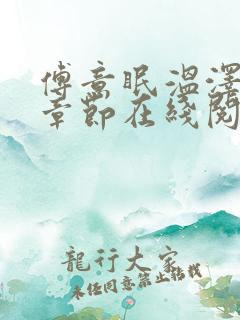 傅意眠温泽
章节在线阅
龍行大家
未经同意禁止搭载